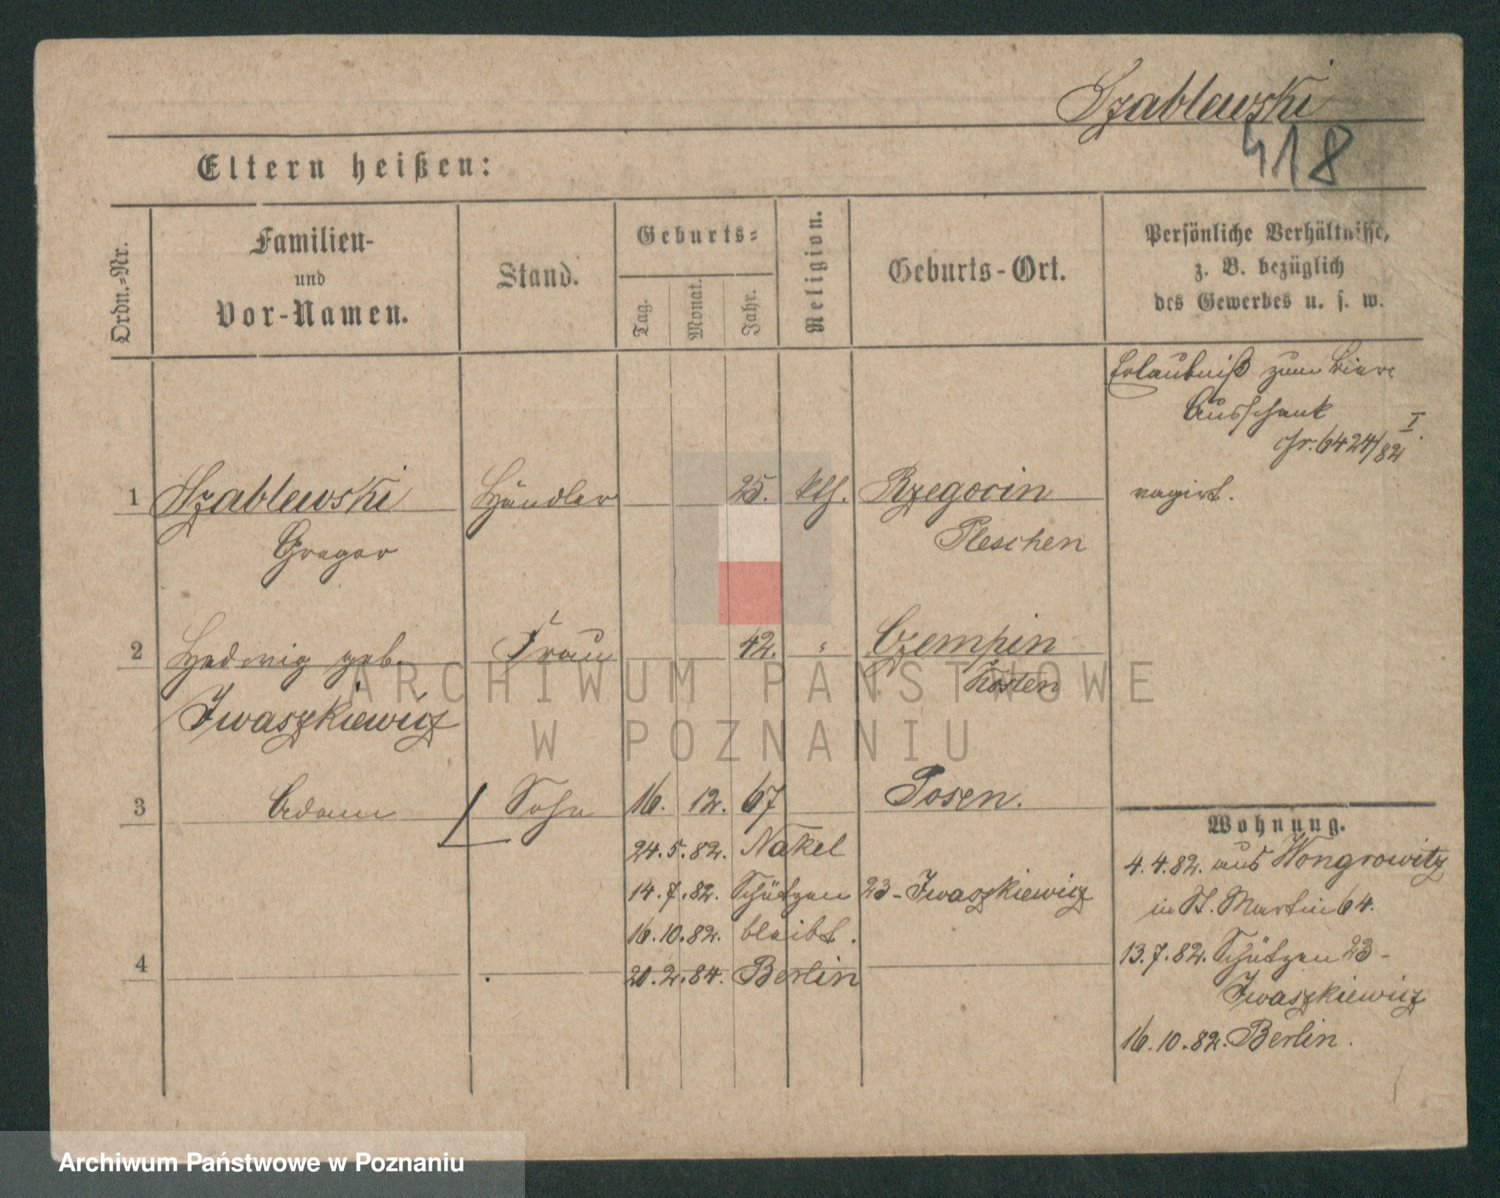 Szablewski
418
Eltern heißen:
Ordn.-Nr.
Familien-
und
Vor-Namen.
Stand.
Geburts-
Tag.
Monat.
Jahr.
Religion.
Geburts-Ort.
Persönliche Verhältnisse,
z. B. bezüglich
des Gewerbes u. s. w.
Erlaubniß zum Bier
Ausschank
Nr. 6424/82 I.
1 Szablewski Händler 25. kth. Rzegocin
Gregor Pleschen
2 Hedwig geb. Frau 42. " Czempin
Kosten
Iwaszkiewicz
3 Adam Sohn 16. 12. 67 Posen.
24.5.82. Nakel
14.7.82. Schützen 23 - Iwaszkiewicz
16.10.82. bleibt.
4 20.2.84. Berlin
Wohnung.
4.4.82. aus Wongrowitz
in St. Martin 64.
13.7.82. Schützen 23 -
Iwaszkiewicz
16.10.82. Berlin.
ARCHIWUM PAŃSTWOWE
W POZNANIU
Archiwum Państwowe w Poznaniu